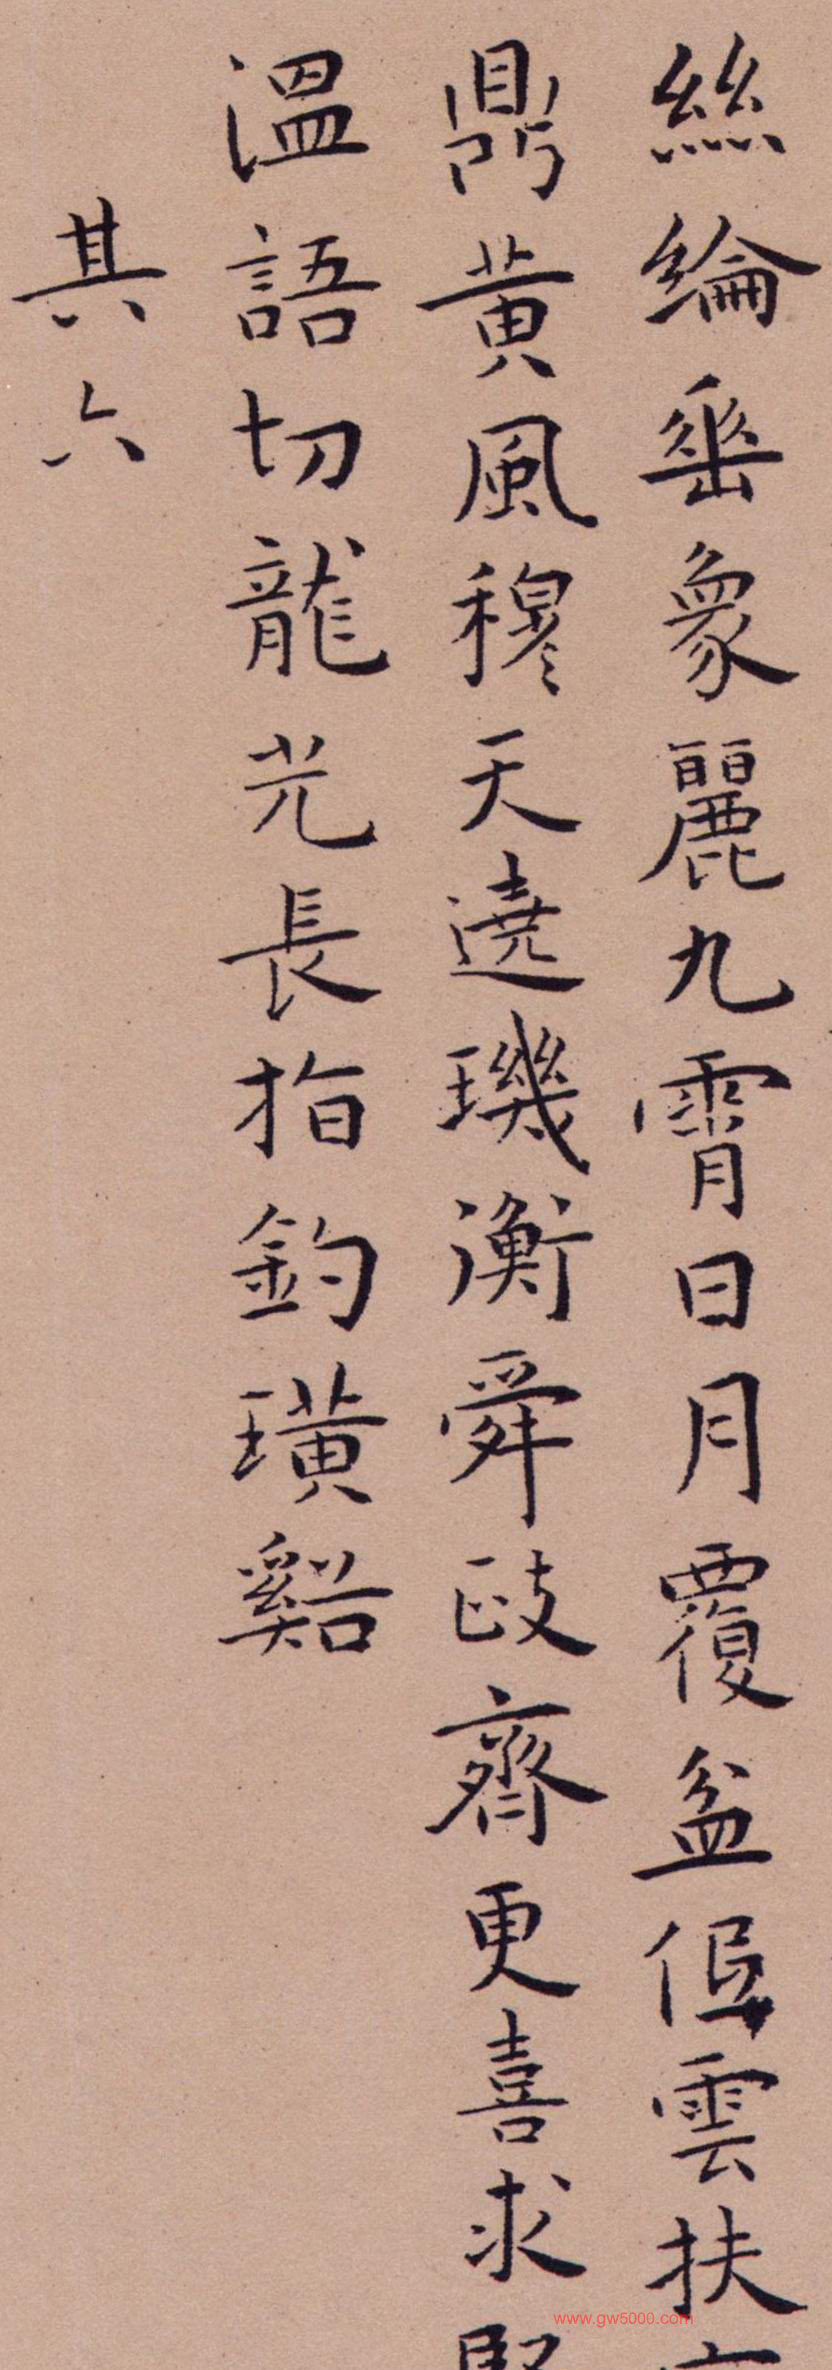 絲綸垂象麗九霄日月覆盆低雲扶
鼎黃風穆天遶璣衡舜政齊更喜求
溫語切龍光長指釣璜谿
其六
www.gw5000.com